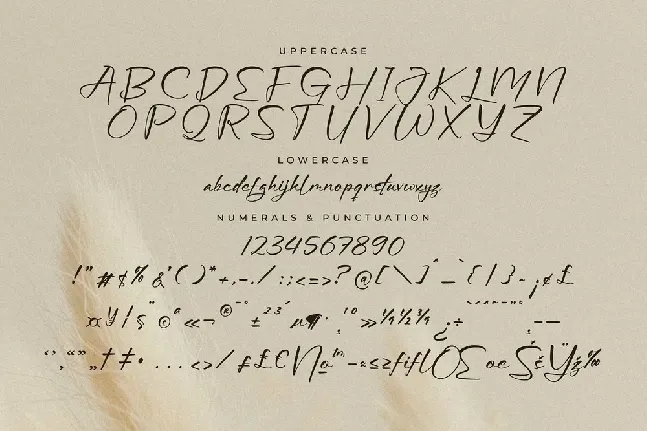 UPPERCASE
ABCDEFGHIJKLMN
OPQRSTUVWXYZ
LOWERCASE
abcdefghijklmnopqrstuvwxyz
NUMERALS & PUNCTUATION
1234567890
!"#$%&'()*+,-./:;<=>?@[\]^_`{|}~¡¢£
¤¥¦§¨©ª«¬®¯°±²³´µ¶·¸¹º»¼½¾¿÷
‘’‚“”„†‡•…‹›⁄ƒ₤€